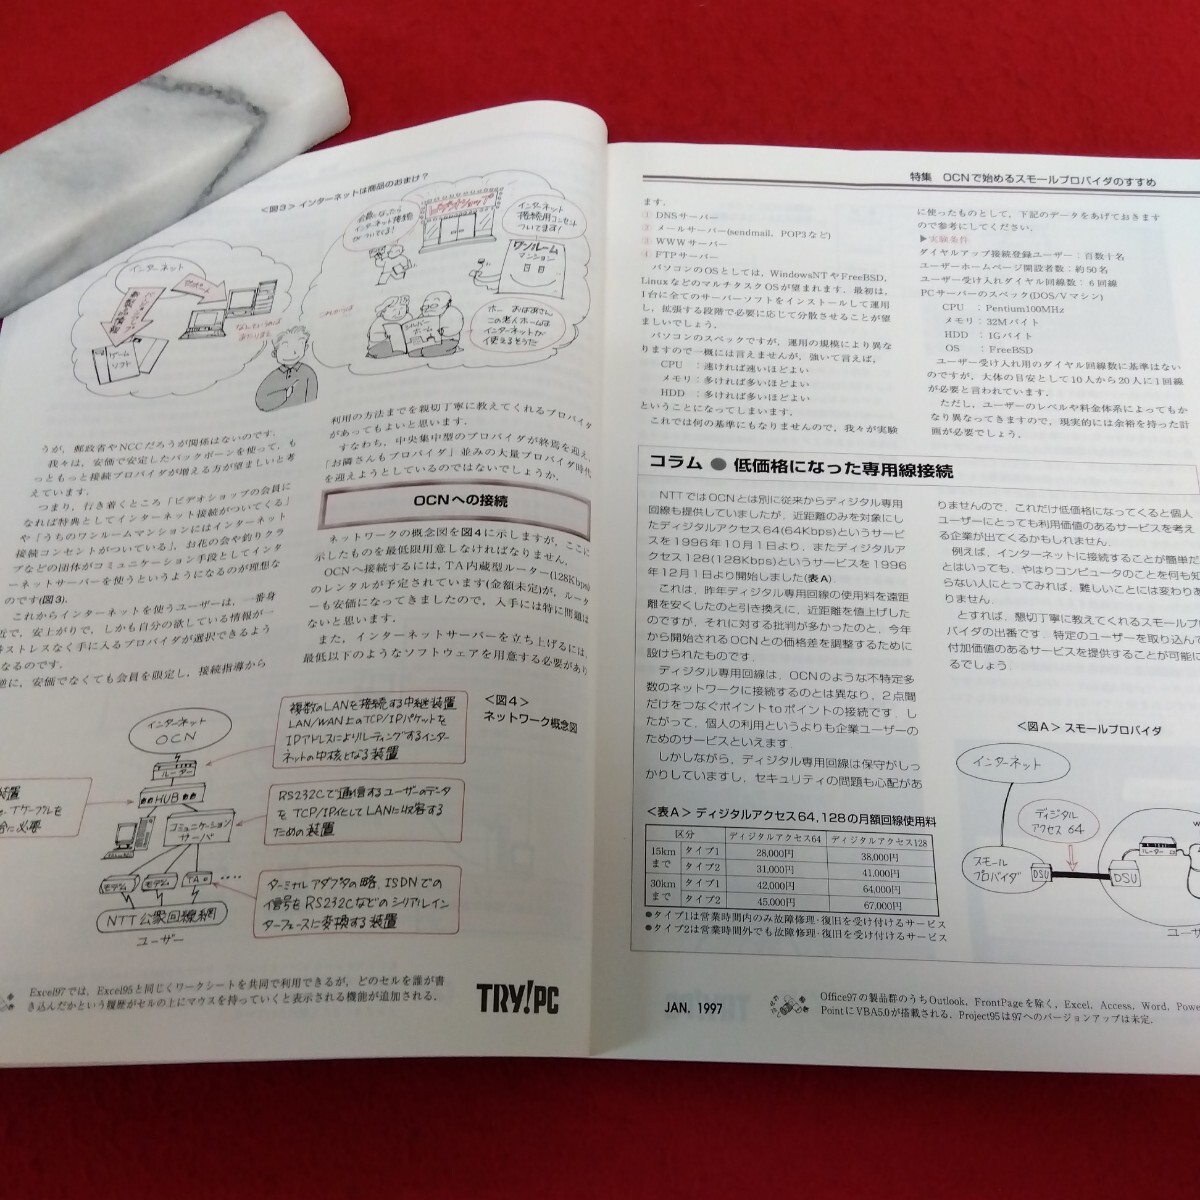 <図3> インターネットは商品のおまけ?
インターネット
ゲーム
ソフト
会員になったら
インターネット接続
がついてる!
ビデオショップ
インターネット
接続用コンセント
ついてます!
ワンルーム
マンション
ホー おばあさん
この老人ホームは
インターネットが
使えるそうだ
うが,郵政省やNCCだろうが関係はないのです.
我々は,安価で安定したバックボーンを使って,も
っともっと接続プロバイダが増える方が望ましいと考
えています.
つまり,行き着くところ「ビデオショップの会員に
なれば特典としてインターネット接続がついてくる」
や「うちのワンルームマンションにはインターネット
接続コンセントがついている」,お花の会や釣りクラ
ブなどの団体がコミュニケーション手段としてインタ
ーネットサーバーを使うというようになるのが理想な
のです(図3).
これからインターネットを使うユーザーは,一番身
近で,安上がりで,しかも自分の欲している情報が一
番ストレスなく手に入るプロバイダが選択できるよう
になるのです.
逆に,安価でなくても会員を限定し,接続指導から
利用の方法までを親切丁寧に教えてくれるプロバイダ
があってもよいと思います.
すなわち,中央集中型のプロバイダが終焉を迎え,
「お隣さんもプロバイダ」並みの大量プロバイダ時代
を迎えようとしているのではないでしょうか.
OCNへの接続
ネットワークの概念図を図4に示しますが,ここに
示したものを最低限用意しなければなりません.
OCNへ接続するには,TA内蔵型ルーター(128Kbps)
のレンタルが予定されています(金額未定)が,ルータ
ーも安価になってきましたので,入手には特に問題は
ないと思います.
また,インターネットサーバーを立ち上げるには,
最低以下のようなソフトウェアを用意する必要があり
<図4>
ネットワーク概念図
インターネット
OCN
ルーター
HUB
コミュニケーション
サーバ
モデム
モデム
TA
NTT公衆回線網
ユーザー
複数のLANを接続する中継装置
LAN/WAN上のTCP/IPパケットを
IPアドレスによりルーティングするインター
ネットの中核となる装置
RS232Cで通信するユーザーのデータ
をTCP/IP化してLANに収容する
ための装置
ターミナルアダプタの略.ISDNでの
信号をRS232Cなどのシリアルイン
ターフェースに変換する装置
Excel97では,Excel95と同じくワークシートを共同で利用できるが,どのセルを誰が書
き込んだかという履歴がセルの上にマウスを持っていくと表示される機能が追加される.
TRY!PC
特集 OCNで始めるスモールプロバイダのすすめ
ます.
① DNSサーバー
② メールサーバー(sendmail, POP3など)
③ WWWサーバー
④ FTPサーバー
パソコンのOSとしては,WindowsNTやFreeBSD,
LinuxなどのマルチタスクOSが望まれます.最初は,
1台に全てのサーバーソフトをインストールして運用
し,拡張する段階で必要に応じて分散させることが望
ましいでしょう.
パソコンのスペックですが,運用の規模により異な
りますので一概には言えませんが,強いて言えば,
CPU : 速ければ速いほどよい
メモリ : 多ければ多いほどよい
HDD : 多ければ多いほどよい
ということになってしまいます.
これでは何の基準にもなりませんので,我々が実験
に使ったものとして,下記のデータをあげておきます
ので参考にしてください.
▶実験条件
ダイヤルアップ接続登録ユーザー:百数十名
ユーザーホームページ開設者数:約50名
ユーザー受け入れダイヤル回線数:6回線
PCサーバーのスペック(DOS/Vマシン)
CPU : Pentium100MHz
メモリ : 32Mバイト
HDD : 1Gバイト
OS : FreeBSD
ユーザー受け入れ用のダイヤル回線数に基準はない
のですが,大体の目安として10人から20人に1回線
が必要と言われています.
ただし,ユーザーのレベルや料金体系によってもか
なり異なってきますので,現実的には余裕を持った計
画が必要でしょう.
コラム ● 低価格になった専用線接続
NTTではOCNとは別に従来からディジタル専用
回線も提供していましたが,近距離のみを対象にし
たディジタルアクセス64(64Kbps)というサービ
スを1996年10月1日より,またディジタルア
クセス128(128Kbps)というサービスを1996
年12月1日より開始しました(表A).
これは,昨年ディジタル専用回線の使用料を遠距
離を安くしたのと引き換えに,近距離を値上げした
のですが,それに対する批判が多かったのと,今年
から開始されるOCNとの価格差を調整するために
設けられたものです.
ディジタル専用回線は,OCNのような不特定多
数のネットワークに接続するのとは異なり,2点間
だけをつなぐポイントtoポイントの接続です.し
たがって,個人の利用というよりも企業ユーザーの
ためのサービスといえます.
しかしながら,ディジタル専用回線は保守がしっ
かりしていますし,セキュリティの問題も心配があ
りませんので,これだけ低価格になってくると個人
ユーザーにとっても利用価値のあるサービスを考え
る企業が出てくるかもしれません.
例えば,インターネットに接続することが簡単だ
とはいっても,やはりコンピュータのことを何も知
らない人にとってみれば,難しいことには変わりあ
りません.
とすれば,懇切丁寧に教えてくれるスモールプロ
バイダの出番です.特定のユーザーを取り込んで
付加価値のあるサービスを提供することが可能に
るでしょう.
<表A> ディジタルアクセス64,128の月額回線使用料
区分 ディジタルアクセス64 ディジタルアクセス128
15kmまで タイプ1 28,000円 38,000円
タイプ2 31,000円 41,000円
30kmまで タイプ1 42,000円 64,000円
タイプ2 45,000円 67,000円
●タイプ1は営業時間内のみ故障修理・復旧を受け付けるサービス
●タイプ2は営業時間外でも故障修理・復旧を受け付けるサービス
<図A> スモールプロバイダ
インターネット
ディジタル
アクセス 64
スモール
プロバイダ
DSU
DSU
ルーター
ユーザ
JAN. 1997
Office97の製品群のうちOutlook,FrontPageを除く,Excel,Access,Word,Powe
PointにVBA5.0が搭載される.Project95は97へのバージョンアップは未定.